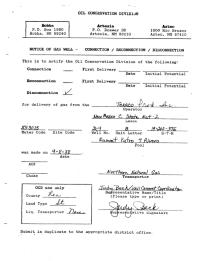 OIL CONSERVATION DIVISION
Hobbs
P.O. Box 1980
Hobbs, NM 88240
Artesia
P.O. Drawer DD
Artesia, NM 88210
Aztec
1000 Rio Brazos
Aztec, NM 87410
NOTICE OF GAS WELL - CONNECTION / RECONNECTION / DISCONNECTION
This is to notify the Oil Conservation Division of the following:
Connection First Delivery
Date Initial Potential
Reconnection First Delivery
Date Initial Potential
Disconnection ✓
for delivery of gas from the
Operator
New Mexico State
Lease
Meter Code Site Code Well No. Unit Letter S-T-R
Pool
was made on
date
AOF
Choke
Northern Natural Gas
Transporter
OCD use only
County Lea
Land Type
Liq. Transporter
Representative Name/Title
(Please type or print)
Representative Signature
Submit in duplicate to the appropriate district office.